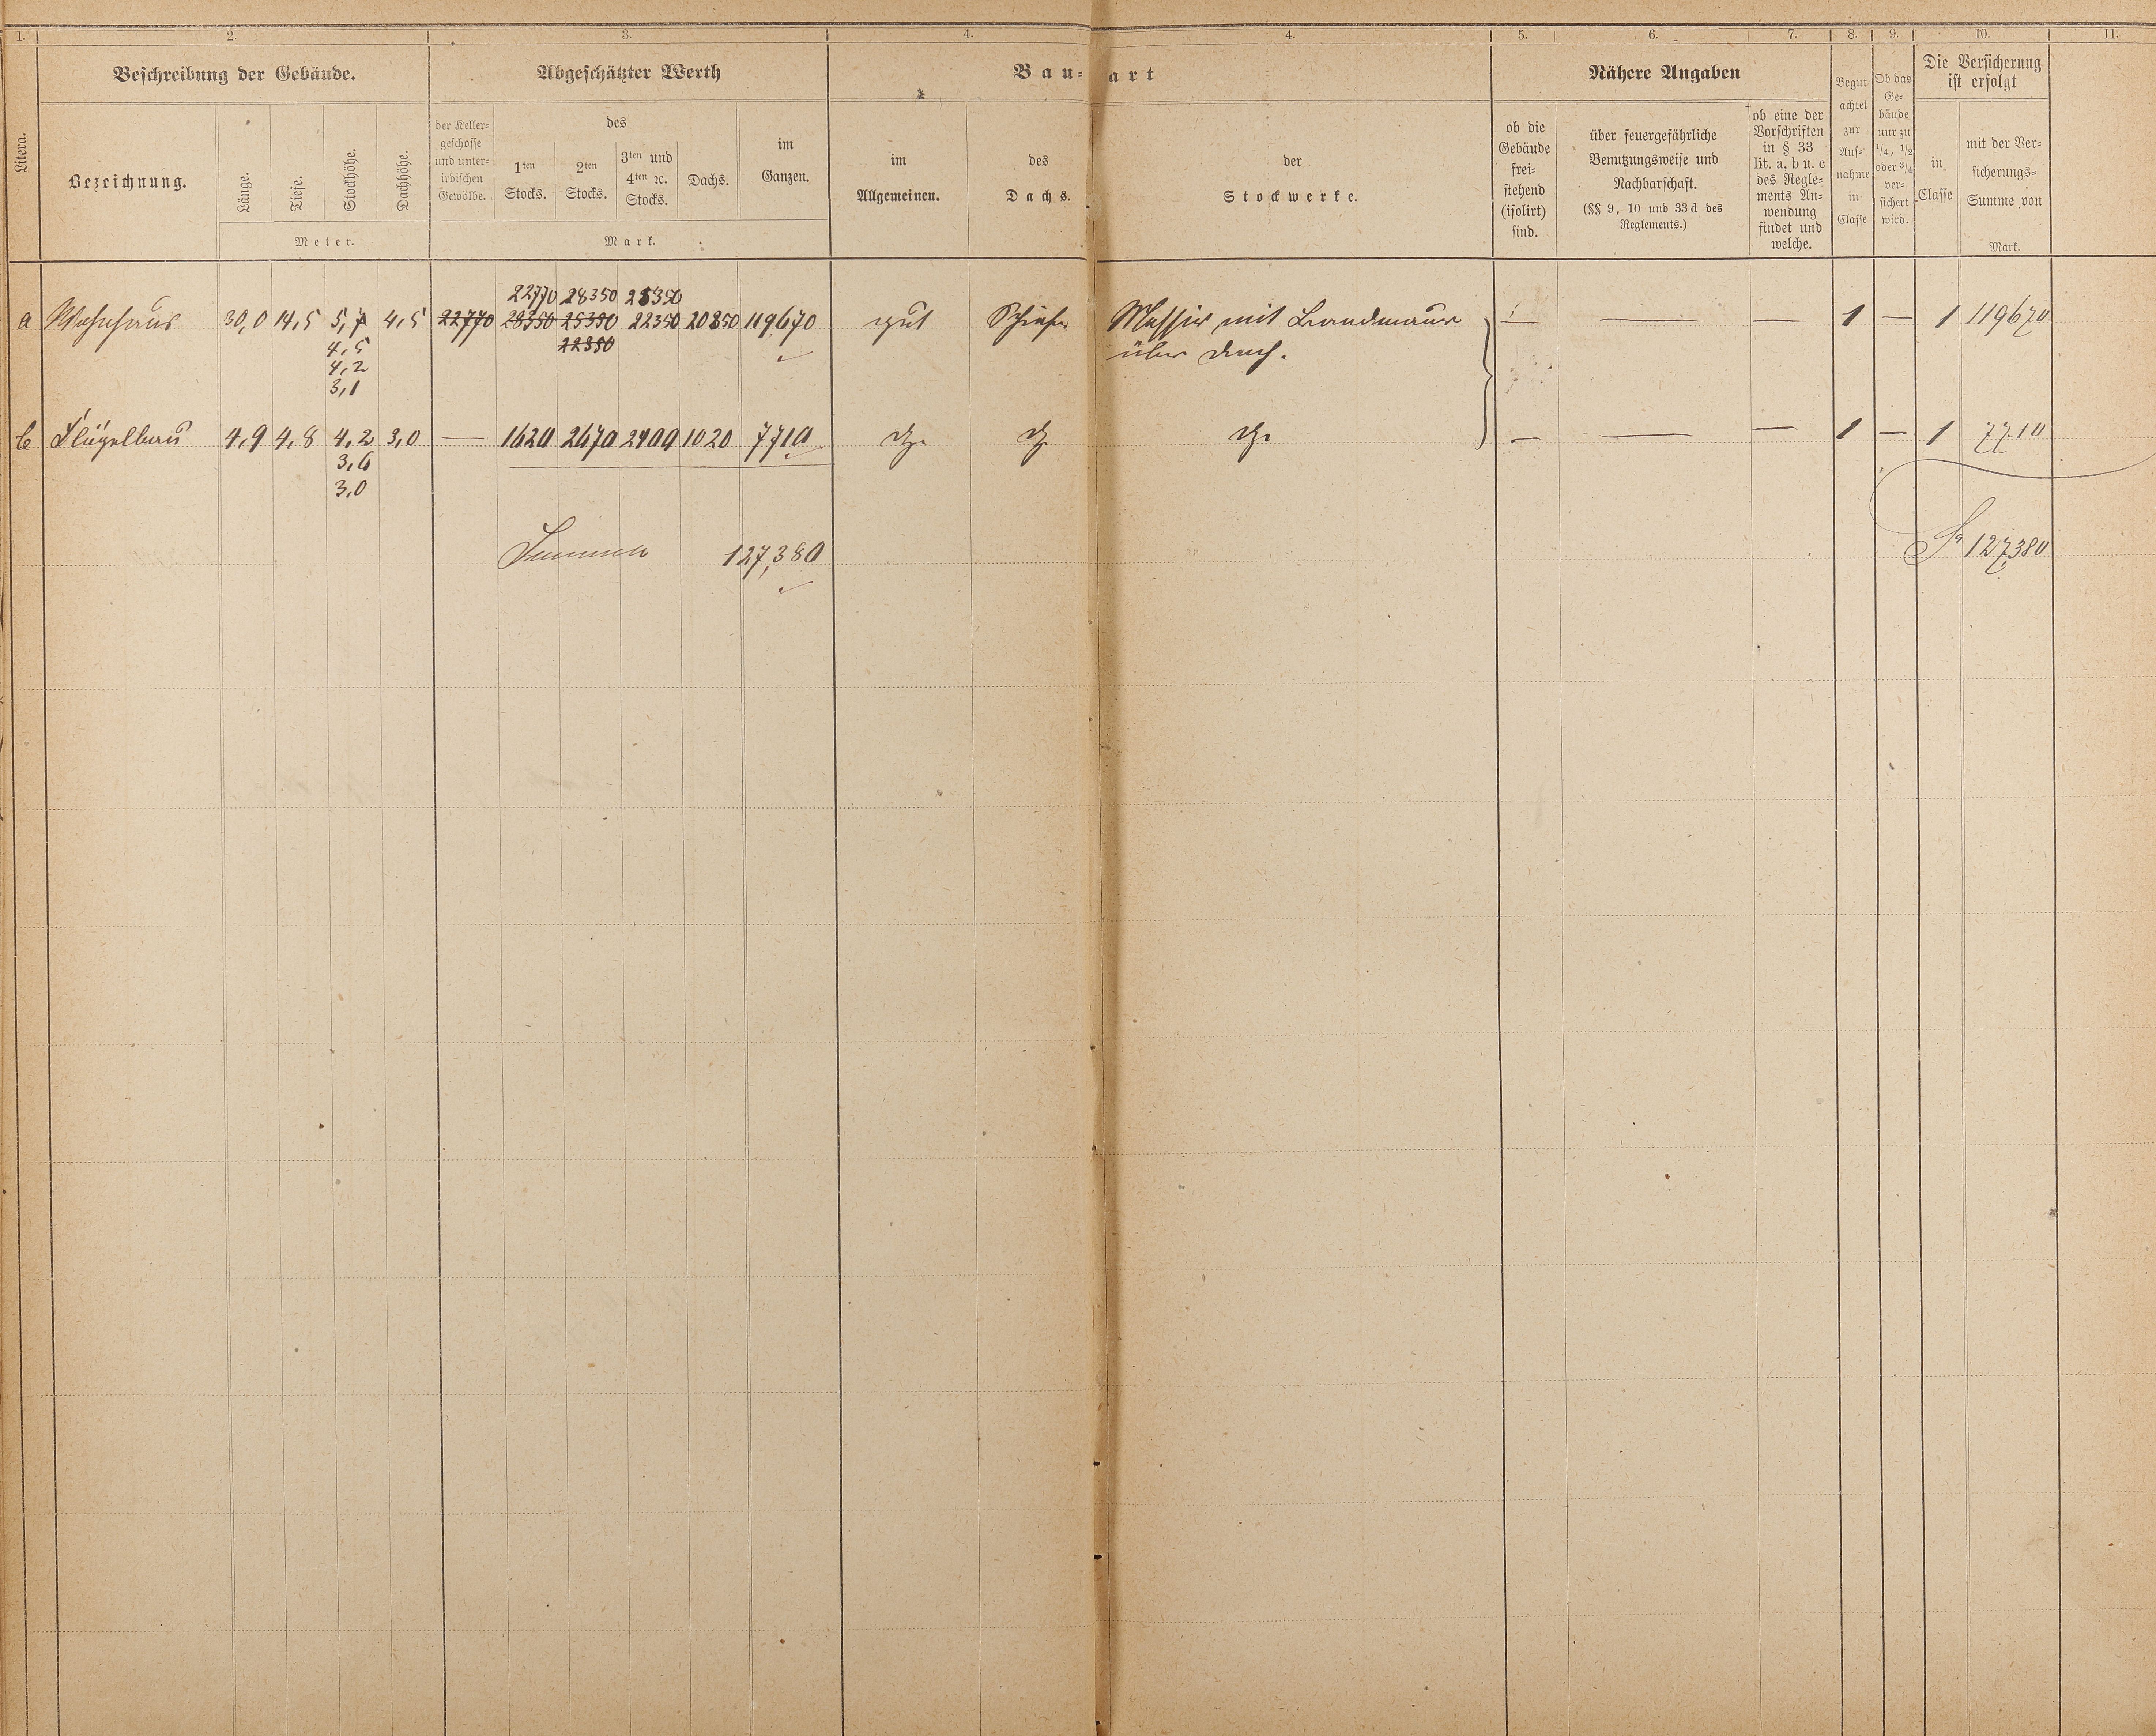 1. 2. 3. 4. 4. 5. 6. 7. 8. 9. 10. 11.
Litera.
Beschreibung der Gebäude.
Bezeichnung.
Länge.
Tiefe.
Stockhöhe.
Dachhöhe.
Meter.
Abgeschätzter Werth
der Keller-
geschosse
und unter-
irdischen
Gewölbe.
des
1ten
Stocks.
2ten
Stocks.
3ten und
4ten ꝛc.
Stocks.
Dachs.
im
Ganzen.
Mark.
Bau- art
im
Allgemeinen.
des
Dachs.
der
Stockwerke.
Nähere Angaben
ob die
Gebäude
frei-
stehend
(isolirt)
sind.
über feuergefährliche
Benutzungsweise und
Nachbarschaft.
(§§ 9, 10 und 33 d des
Reglements.)
ob eine der
Vorschriften
in § 33
lit. a, b u. c
des Regle-
ments An-
wendung
findet und
welche.
Begut-
achtet
zur
Auf-
nahme
in
Classe
Ob das
Ge-
bäude
nur zu
1/4, 1/2
oder 3/4
ver-
sichert
wird.
Die Versicherung
ist erfolgt
in
Classe
mit der Ver-
sicherungs-
Summe von
Mark.
22770 28350 25350
a Wohnhaus 30,0 14,5 5,7 4,5 22770 28350 25350 22350 20850 119670 gut Schiefer Massiv mit Brandmauer — — — 1 — 1 119670
4,5 22350 über Dach.
4,2
3,1
b Flügelbau 4,9 4,8 4,2 3,0 — 1620 2670 2400 1020 7710 do do do — — — 1 — 1 7710
3,6
3,0
Summa 127,380 Sa 127,380